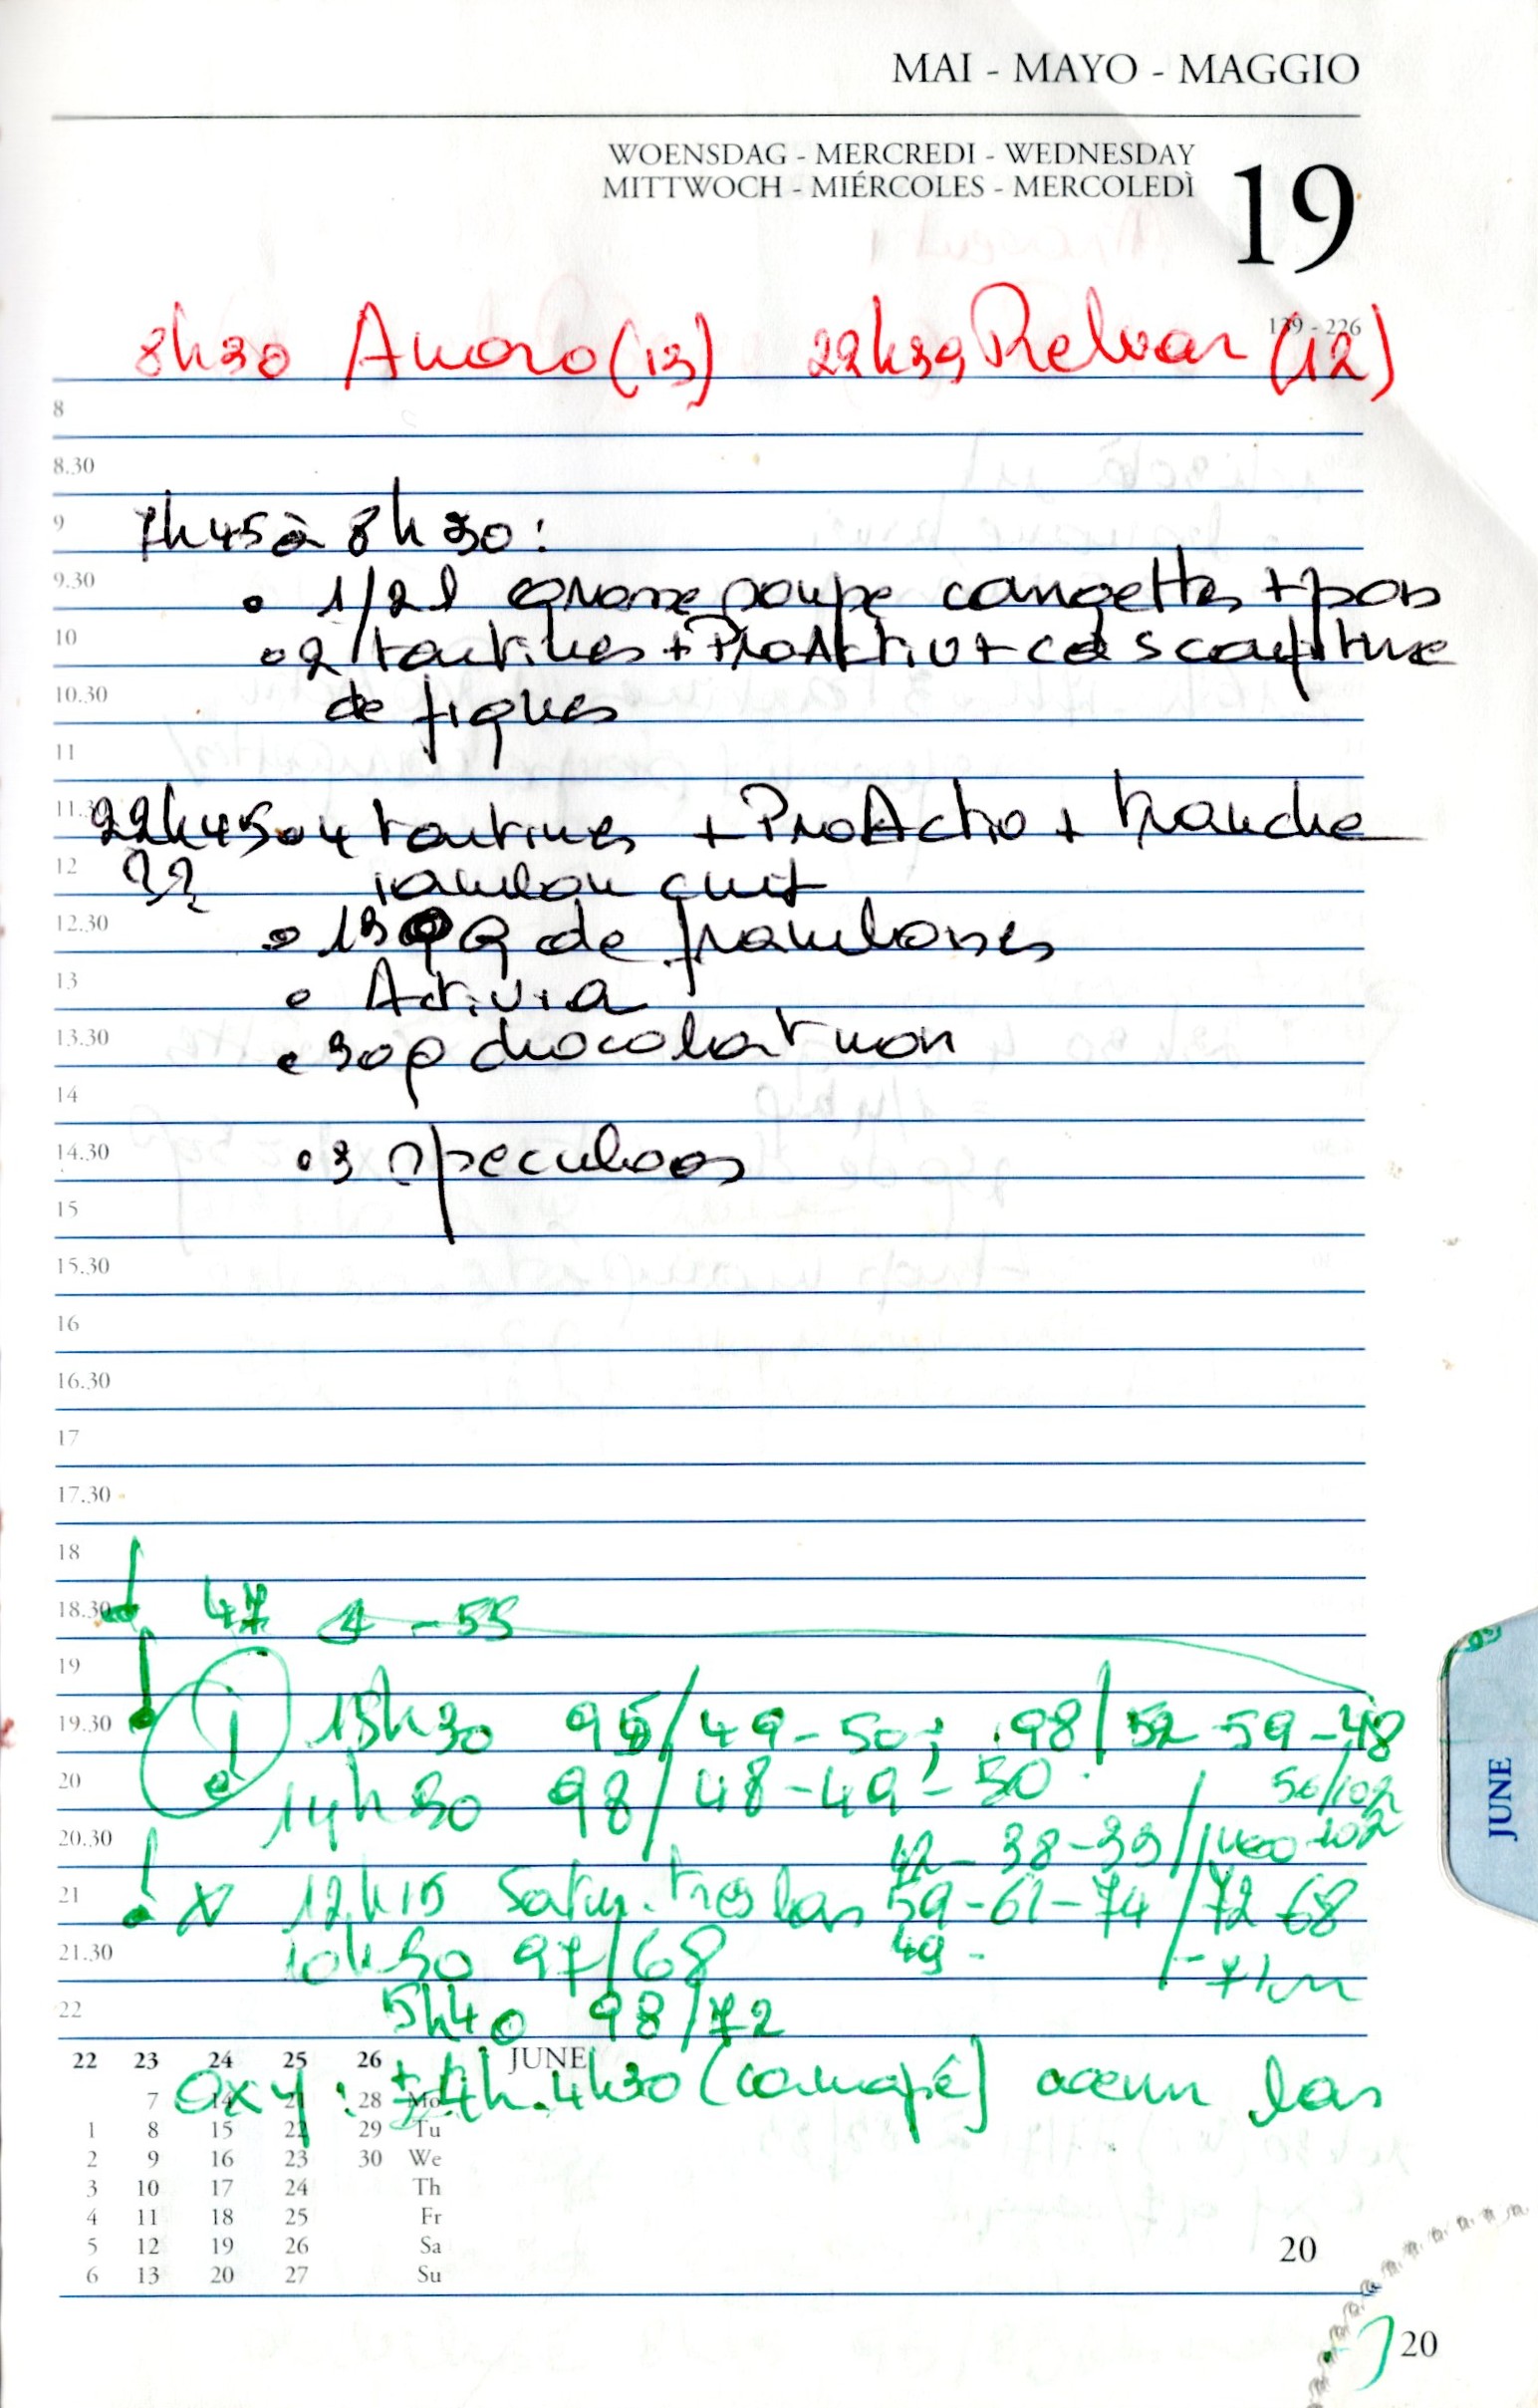 MAI - MAYO - MAGGIO
WOENSDAG - MERCREDI - WEDNESDAY
MITTWOCH - MIÉRCOLES - MERCOLEDÌ
19
139 - 226
8h30 Amoro (13) 22h39 Relvar (12)
8
8.30
9
7h45 à 8h30 :
9.30
• 1/2 l grosse soupe courgettes + pois
10
• 2 tartines + ProActiv + càs confiture
10.30
de figues
11
11.30
22h45 • 4 tartines + ProActiv + tranche
12
?? jambon cuit
12.30
• 150 g de framboises
13
• Activia
13.30
• 30g chocolat noir
14
14.30
• 3 speculoos
15
15.30
16
16.30
17
17.30
18
18.30
47 - 55
19
19.30
! 13h30 95/49-50 ; 98/52-59-48
20
14h30 98/48-49-50
50/102
20.30
42-38-39/100-102
21
12h15 Satur. très bas 59-61-74/72-68
21.30
10h30 97/68 49 -
22
5h40 98/72
22 23 24 25 26 JUNE
oxy : ±4h.4h30 (canapé) bas
7 14 21 28 Mo
1 8 15 22 29 Tu
2 9 16 23 30 We
3 10 17 24 Th
4 11 18 25 Fr
5 12 19 26 Sa
6 13 20 27 Su
20
20
JUNE